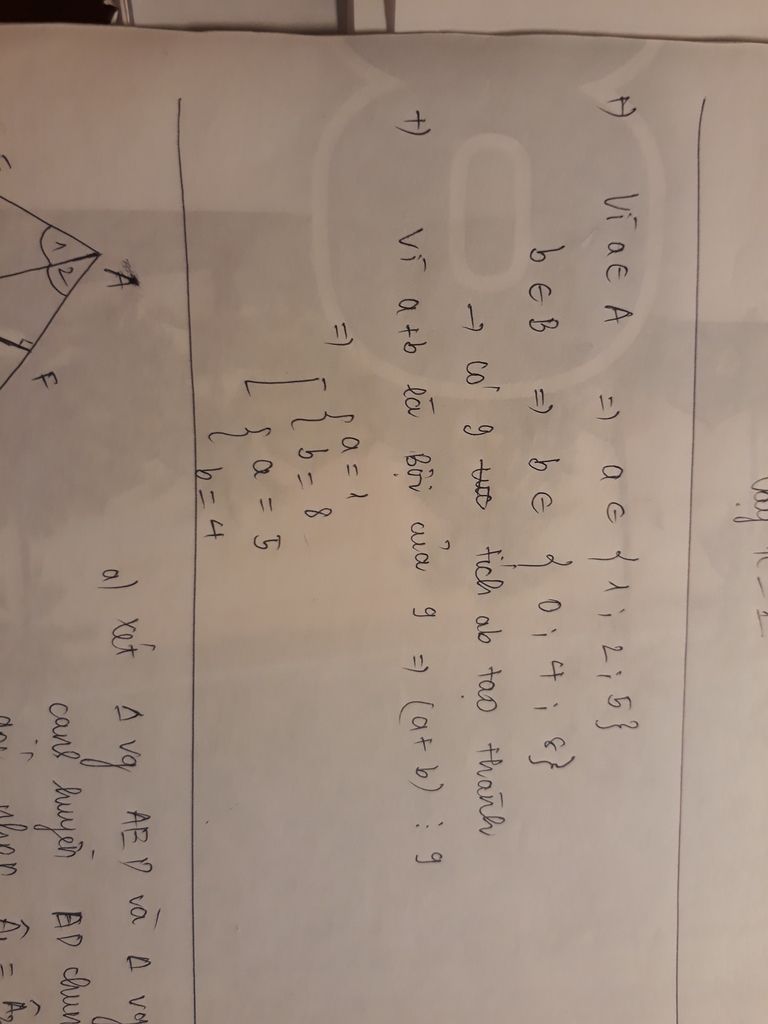 +) Vì a ∈ A => a ∈ { 1 ; 2 ; 5 }
b ∈ B => b ∈ { 0 ; 4 ; 8 }
→ có 9 tích ab tạo thành
+) Vì a + b là bội của 9 => (a + b) ⋮ 9
=> [ { a = 1
b = 8
{ a = 5
b = 4
A
1 2
F
a) xét Δ vg AED và Δ vg
cạnh huyền AD chun
nhọn Â₁ = Â₂